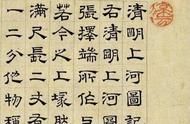 清明上河圖記
右清明上河圖
張擇端所作上
若今之上冢然
滿尺長二丈有
一二分他物稱